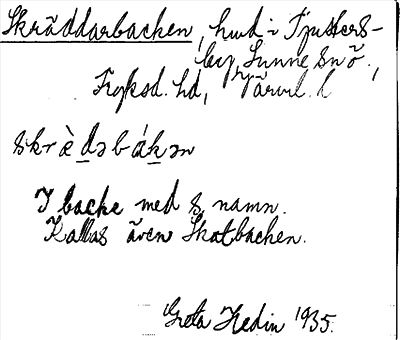 Skräddarbacken, hmd i Tjusters-
berg, Sunne sn ö.,
Fryksd. hd, Värml. l
skrὲdəbákən
I backe med s. namn.
Kallas även Skatbacken.
Greta Hedin 1935.